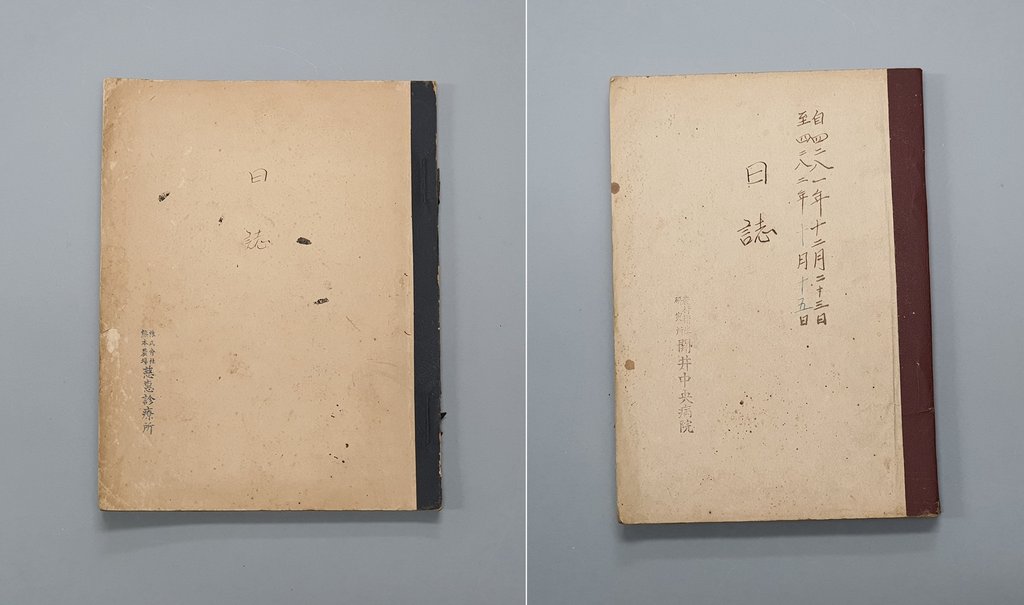 日誌
株式會社
熊本農場
慈惠診療所
自四二八一年十二月二十三日
至四二八二年十月十五日
日誌
研究所
開井中央病院